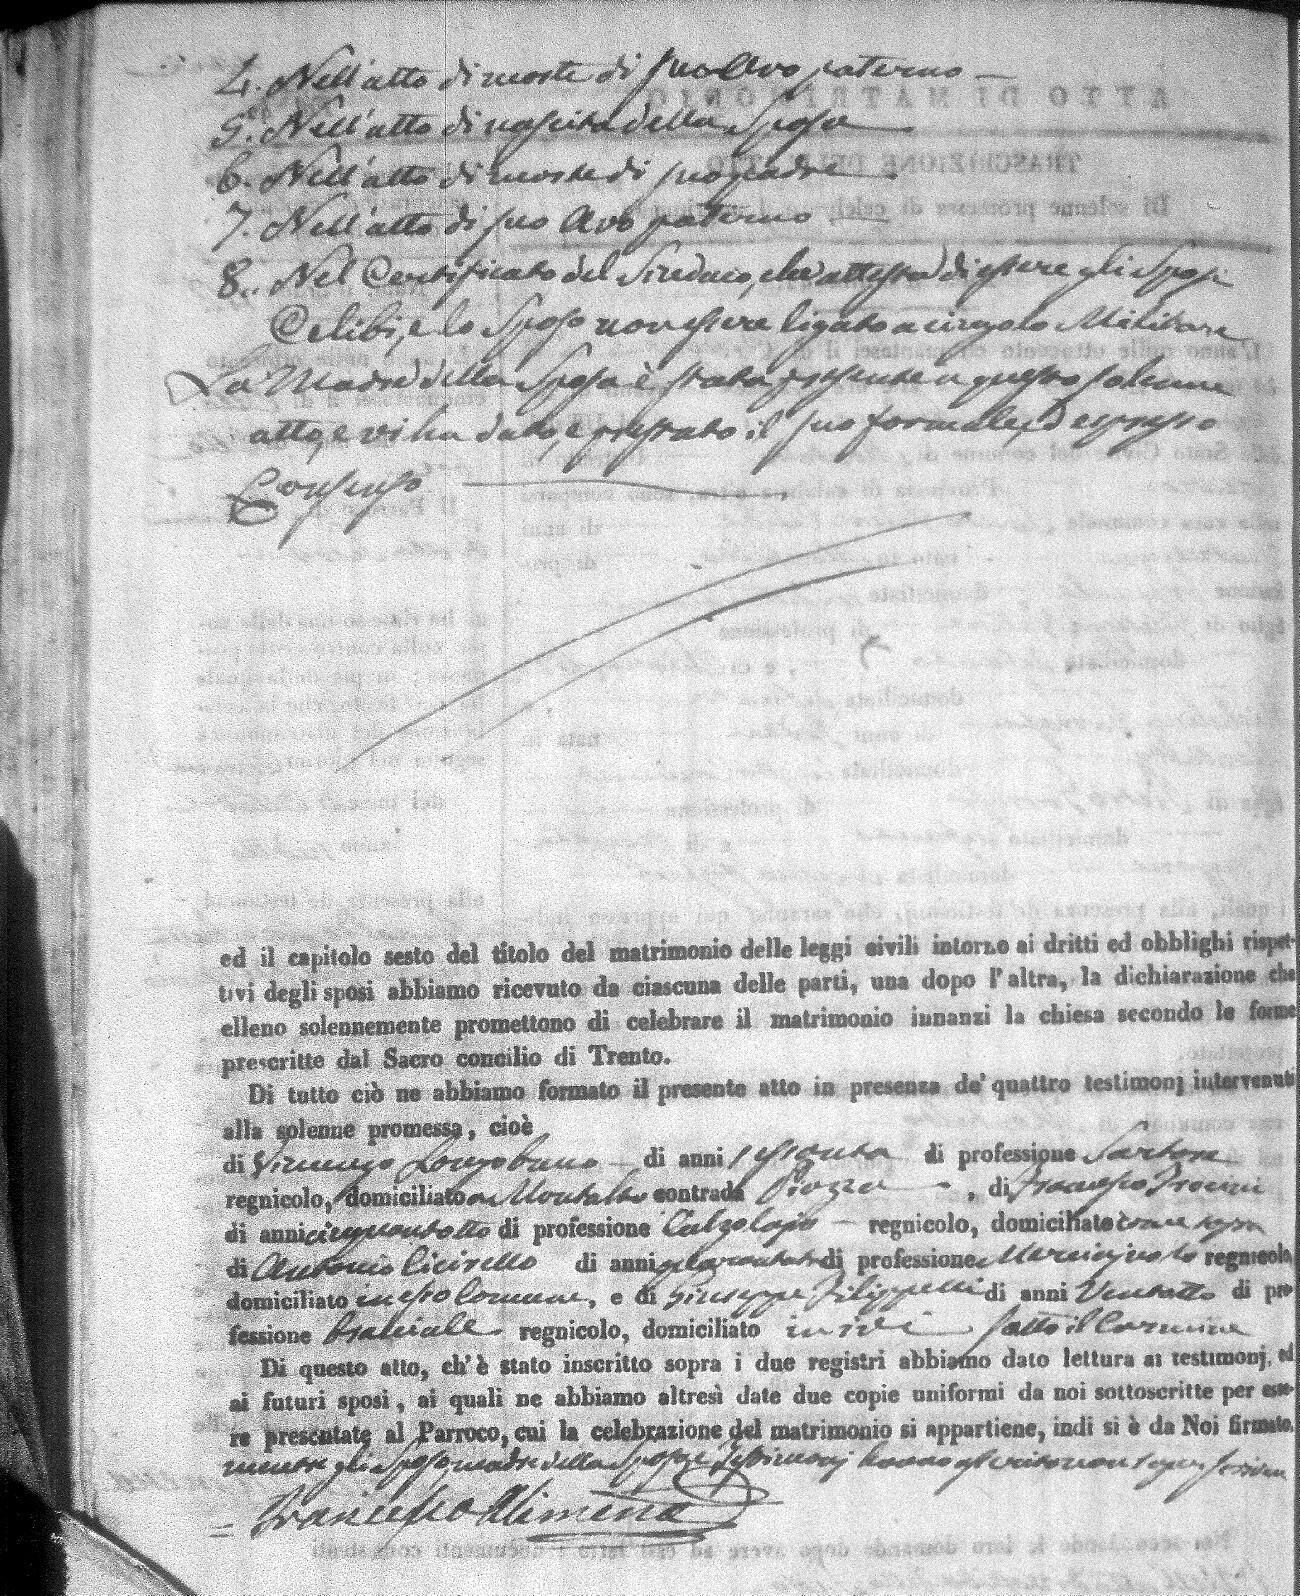 4. Nell'atto di morte di suo Avo paterno —
5. Nell'atto di nascita della Sposa
6. Nell'atto di morte di suo padre
7. Nell'atto di suo Avo paterno
8. Nel Certificato del Sindaco, che attesta di essere gli Sposi
Celibi, e lo Sposo non essere ligato a vincolo Militare
La Madre della Sposa è stata presente a questo solenne
atto, e vi ha dato, e prestato il suo formale, ed espresso
Consenso
ed il capitolo sesto del titolo del matrimonio delle leggi civili intorno ai dritti ed obblighi rispet-
tivi degli sposi abbiamo ricevuto da ciascuna delle parti, una dopo l'altra, la dichiarazione che
elleno solennemente promettono di celebrare il matrimonio innanzi la chiesa secondo le forme
prescritte dal Sacro concilio di Trento.
Di tutto ciò ne abbiamo formato il presente atto in presenza de' quattro testimonj intervenuti
alla solenne promessa, cioè
di Vincenzo Longobucco di anni sessanta di professione Sartore
regnicolo, domiciliato a Montalto contrada Piazza, di Francesco
di anni cinquantotto di professione Calzolajo — regnicolo, domiciliato come sopra
di Antonio Cicirello di anni quaranta di professione regnicolo
domiciliato in esso Comune, e di Giuseppe Filippelli di anni Ventotto di pro
fessione bracciale regnicolo, domiciliato in ivi
Di questo atto, ch'è stato inscritto sopra i due registri abbiamo dato lettura ai testimonj, ed
ai futuri sposi, ai quali ne abbiamo altresì date due copie uniformi da noi sottoscritte per esse-
re presentate al Parroco, cui la celebrazione del matrimonio si appartiene, indi si è da Noi firmato,
mentre gli Sposi, madre della Sposa, e Testimonj hanno asserito non saper scrivere
= Francesco Alimena